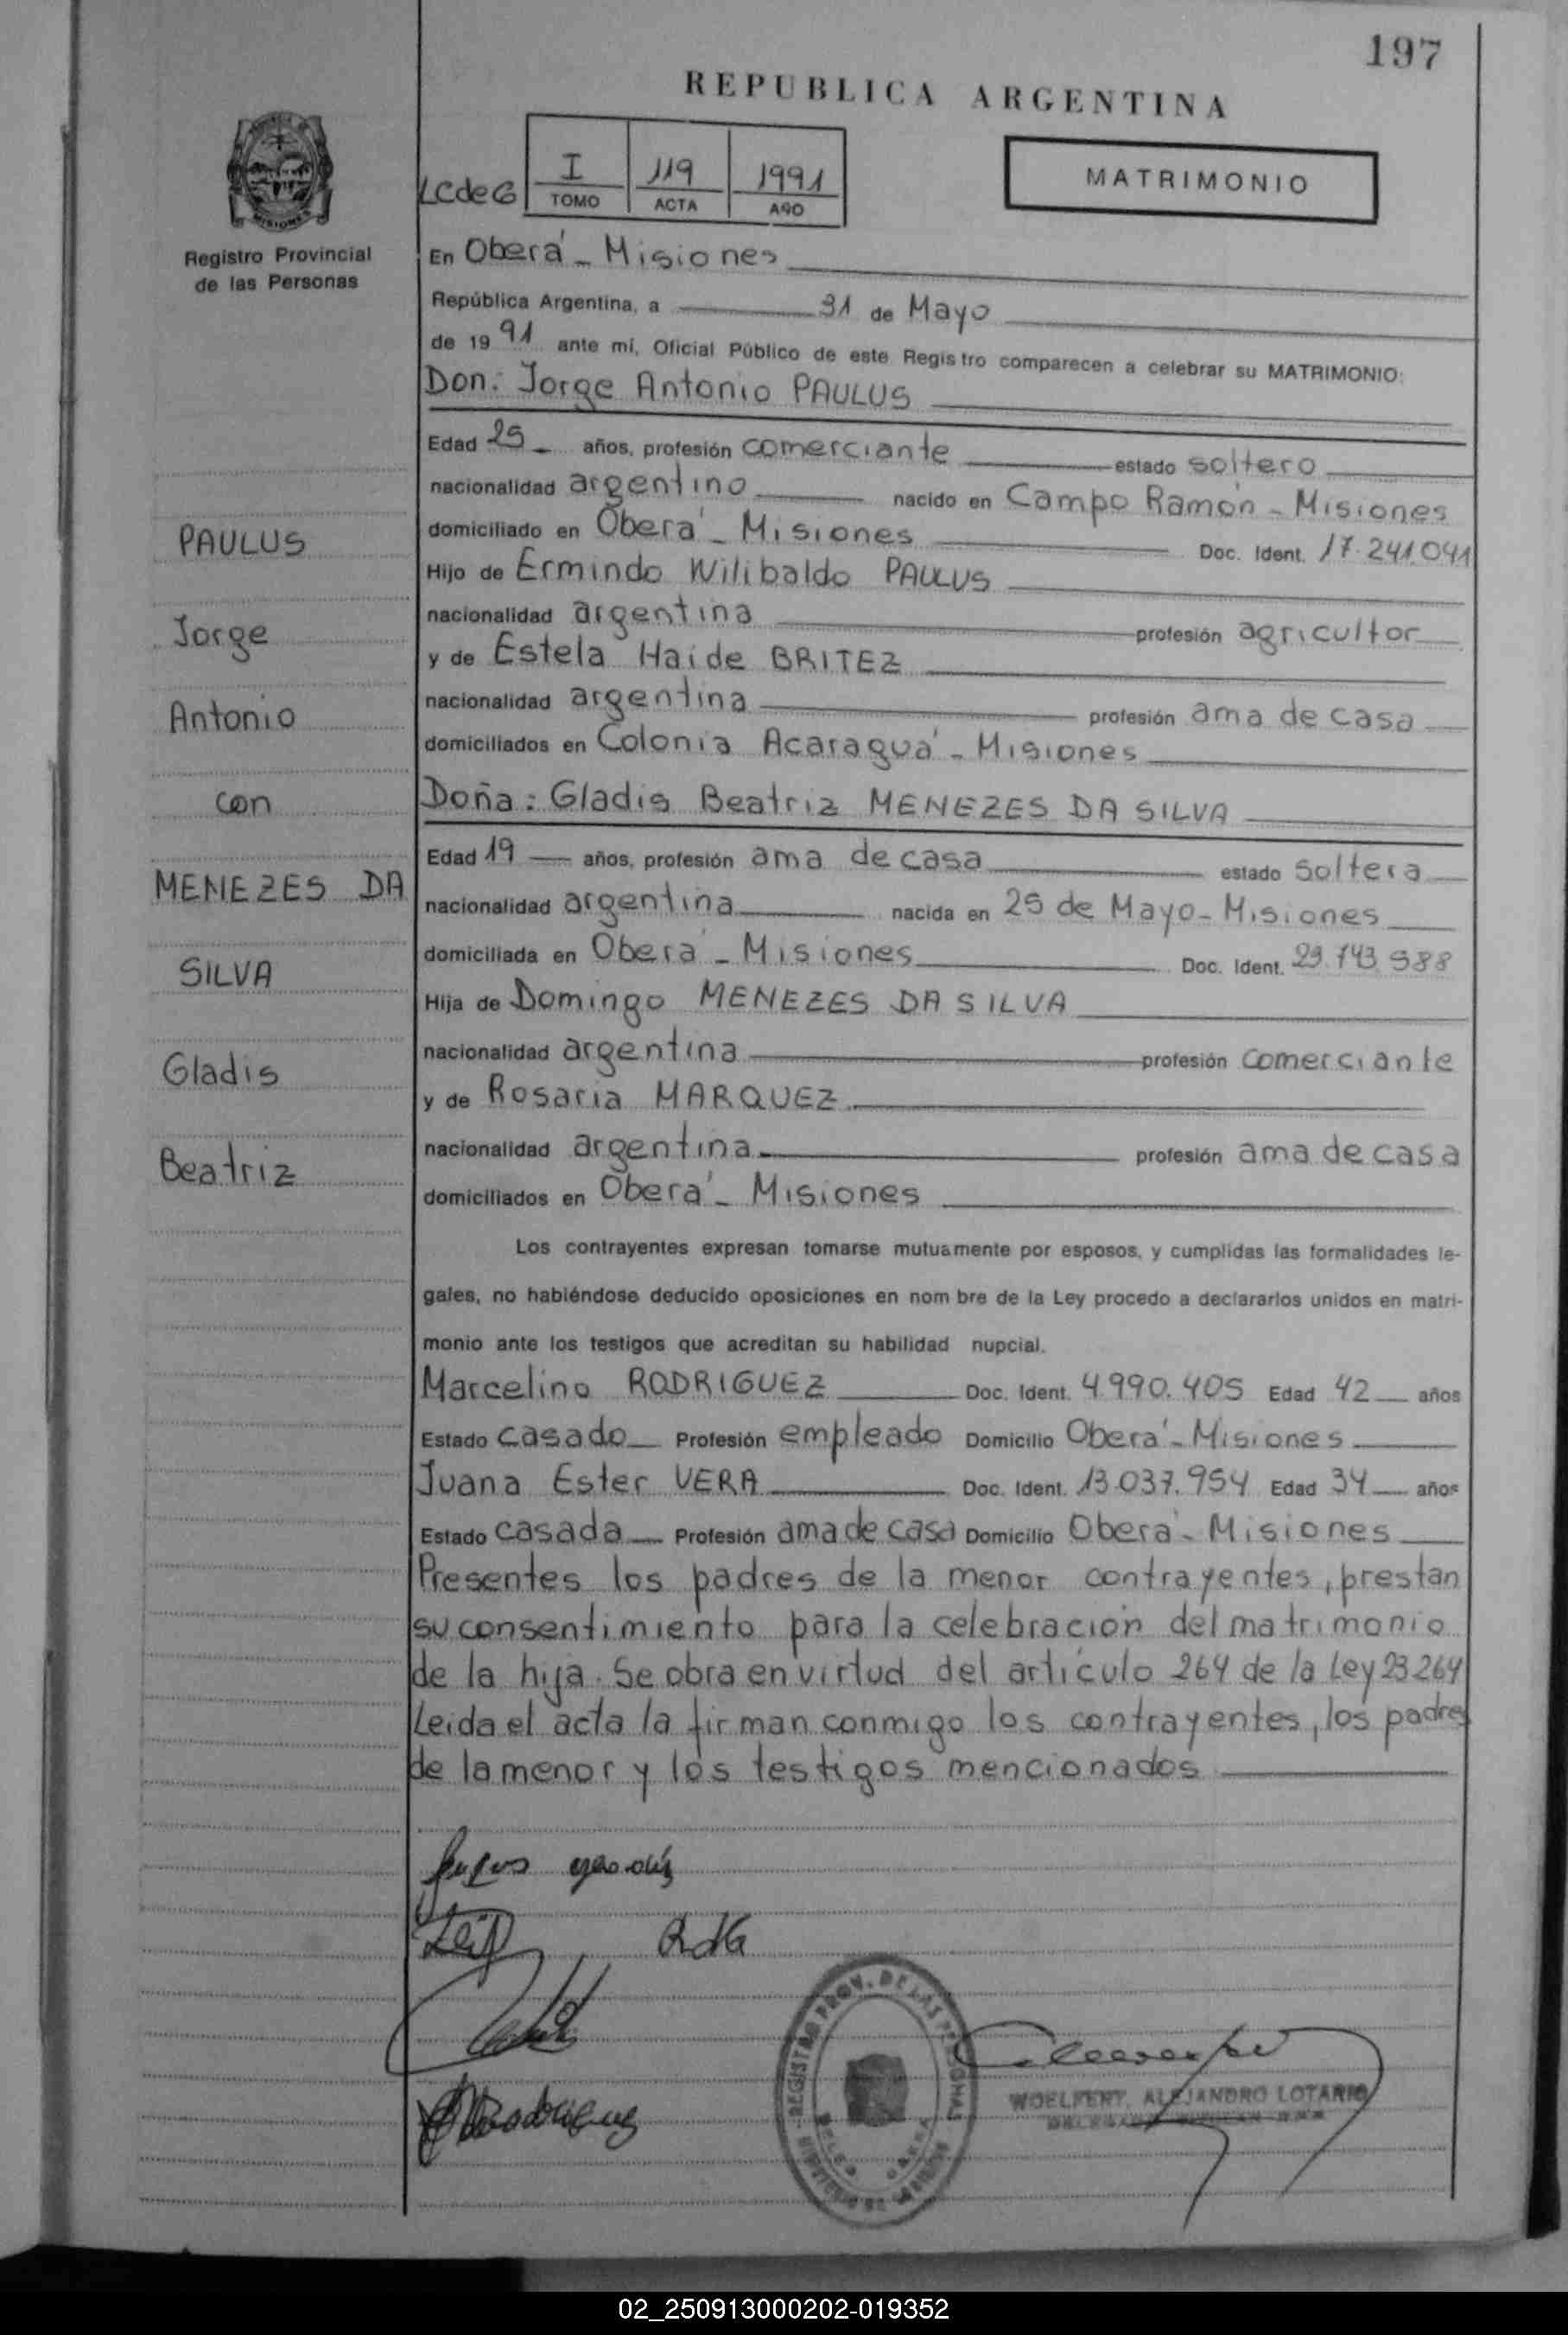 197
REPUBLICA ARGENTINA
LCdeG
I 119 1991
TOMO ACTA AÑO
MATRIMONIO
MISIONES
Registro Provincial
de las Personas
En Oberá - Misiones
República Argentina, a 31 de Mayo
de 1991 ante mí, Oficial Público de este Registro comparecen a celebrar su MATRIMONIO:
Don: Jorge Antonio PAULUS
Edad 25 años, profesión comerciante estado soltero
nacionalidad argentino nacido en Campo Ramón - Misiones
domiciliado en Oberá - Misiones Doc. Ident. 17.241.041
Hijo de Ermindo Wilibaldo PAULUS
nacionalidad argentina profesión agricultor
y de Estela Haide BRITEZ
nacionalidad argentina profesión ama de casa
domiciliados en Colonia Acaraguá - Misiones
Doña: Gladis Beatriz MENEZES DA SILVA
Edad 19 años, profesión ama de casa estado soltera
nacionalidad argentina nacida en 25 de Mayo - Misiones
domiciliada en Oberá - Misiones Doc. Ident.
Hija de Domingo MENEZES DA SILVA
nacionalidad argentina profesión comerciante
y de Rosaria MARQUEZ
nacionalidad argentina profesión ama de casa
domiciliados en Oberá - Misiones
PAULUS
Jorge
Antonio
con
MENEZES DA
SILVA
Gladis
Beatriz
Los contrayentes expresan tomarse mutuamente por esposos, y cumplidas las formalidades le-
gales, no habiéndose deducido oposiciones en nombre de la Ley procedo a declararlos unidos en matri-
monio ante los testigos que acreditan su habilidad nupcial.
Marcelino RODRIGUEZ Doc. Ident. 4.990.405 Edad 42 años
Estado casado Profesión empleado Domicilio Oberá - Misiones
Juana Ester VERA Doc. Ident. 13.037.954 Edad 34 años
Estado casada Profesión ama de casa Domicilio Oberá - Misiones
Presentes los padres de la menor contrayentes, prestan
su consentimiento para la celebración del matrimonio
de la hija. Se obra en virtud del artículo 264 de la Ley 23264
Leida el acta la firman conmigo los contrayentes, los padres
de la menor y los testigos mencionados
REGISTRO PROV. DE LAS PERSONAS
WOELFERT, ALEJANDRO LOTARIO
02_250913000202-019352